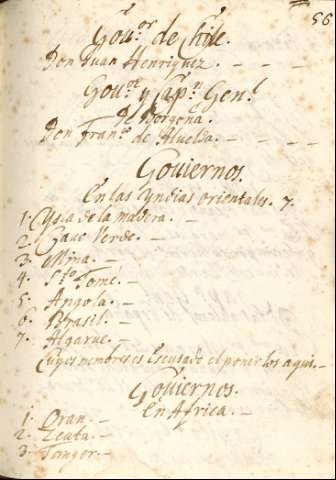 56
Gou.or de Chile.
Don Juan Henriquez. - - -
Gou.or y Cap.n Gen.l
De Borgoña.
Don Fran.co de Alvelda. - - -
Gouiernos.
En las Yndias orientales. 7.
1. Ysla de la madera. -
2. Cauo Verde. -
3. Mina. -
4. S.to Tomé. -
5. Angola. -
6. Brasil. -
7. Algarue.
Cuyos nombres es Escusado el ponerlos aqui. -
Gouiernos.
En Africa. -
1. Oran. -
2. Zeuta. -
3. Tanger. -